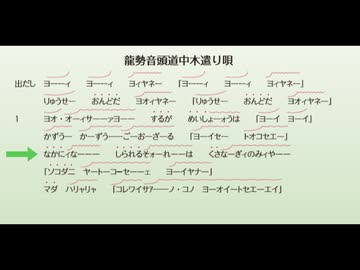 龍勢音頭道中木遣り唄
出だし ヨーーィ ヨーーィ ヨィヤネー 「ヨーーィ ヨーーィ ヨィヤネー」
りゅうせー おんどだ ヨオィヤネー 「りゅうせー おんどだ ヨオィヤネー」
1 ヨオ・オーィサーーァヨーー するが めいしょーォうは 「ヨーイ ヨーイ」
かずうー かーずうーーごーおーざーる 「ヨーイセー トオコセエー」
なかにィなーーー しられるそォーれーーは くさなーぎィのみィヤーー
「ソコダニ ヤートーコーセーーェ ヨーイヤナー」
マダ ハリャリャ 「コレワイサアーーノ・コノ ヨーオイートセエーエイ」